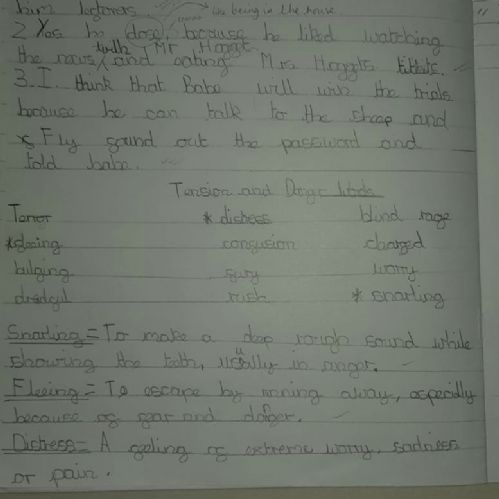 him lectures
being in the house
2 Yes he dose, because he liked watching
the news, with Mr Hogget and eating Mrs Hoggts titbits.
3. I think that Babe will win the trials
because he can talk to the sheep and
Fly found out the password and
told babe.
Tension and Danger Words
Terror * distress blind rage
* glaring confusion charged
bulging fury worry
dredful rush * snarling
Snarling = To make a deep rough sound while
showing the teeth, usually in anger.
Fleeing = To escape by running away, especially
because of fear and danger.
Distress = A feeling of extreme worry, sadness
or pain.